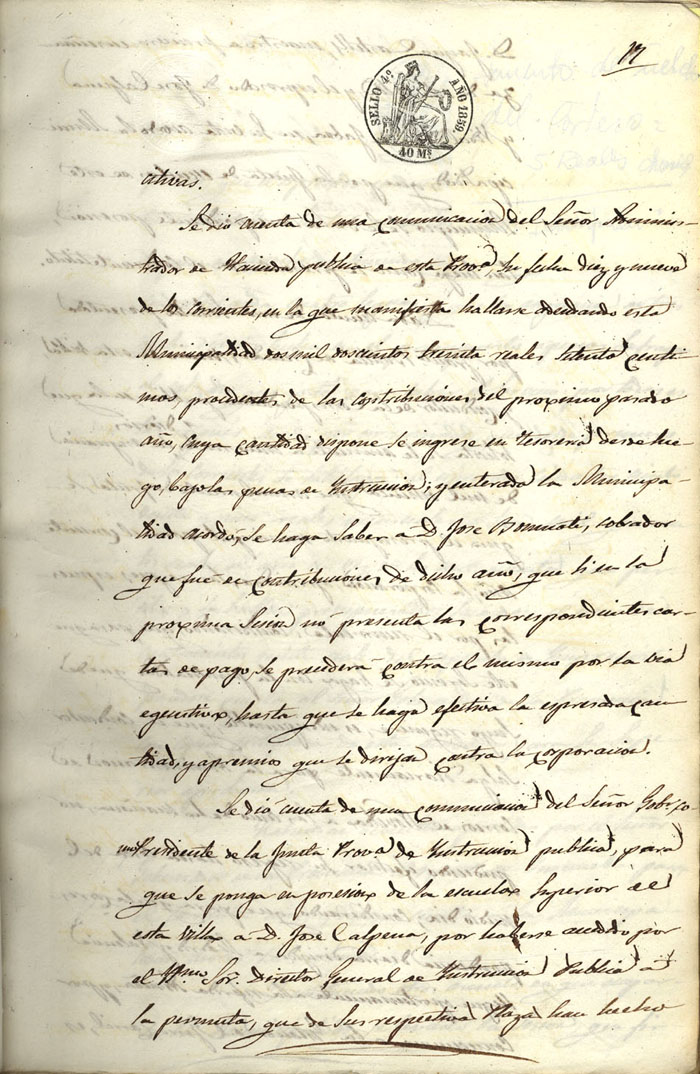 17
SELLO 4º. AÑO 1859.
40 Ms
ativas.
Se dió cuenta de una comunicacion del Señor Adminis-
trador de Hacienda publica de esta Provª, su fecha diez y nueve
de los corrientes, en la que manifiesta hallarse adeudando esta
Municipalidad dos mil doscientos treinta reales setenta centi-
mos, procedentes de las contribuciones del proximo pasado
año, cuya cantidad dispone se ingrese en tesoreria desde lue-
go, bajo las penas de Instruccion; y enterada la Municipa-
lidad acordó, se haga saber á D. Jose, cobrador
que fué de contribuciones de dicho año, que si en la
proxima Sesion no presenta las correspondientes car-
tas de pago, se procederá contra el mismo por la via
egecutiva, hasta que se haga efectiva la espresada can-
tidad, y apremios que se dirijan contra la corporacion.
Se dió cuenta de una comunicacion del Señor Gobr. co-
mo Presidente de la Junta Provª de Instruccion publica, para
que se ponga en posesion de la escuela Superior de
esta villa a D. Jose Calpena, por haberse accedido por
el Yltmo Sor. Director General de Instruccion Publica á
la permuta, que de sus respectivas Plazas han hecho